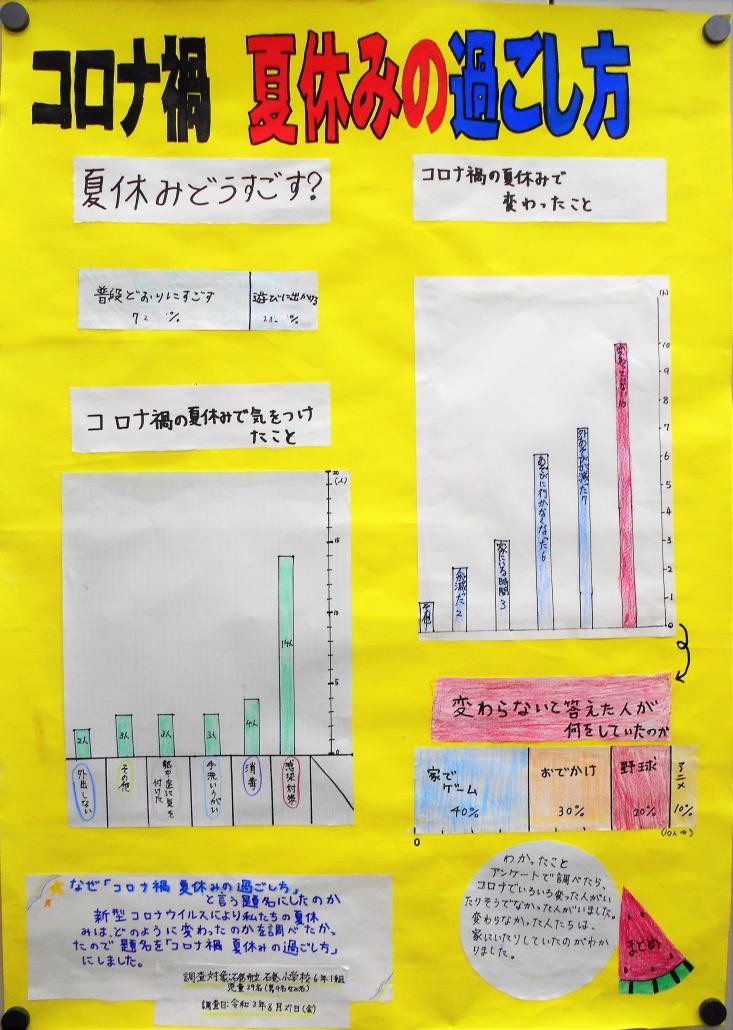 コロナ禍 夏休みの過ごし方
夏休みどうすごす?
普段どおりにすごす
72 %
遊びに出かける
%
コロナ禍の夏休みで気をつけ
たこと
20
(人)
15
10
5
0
2人
3人
3人
3人
4人
14人
外出しない
その他
熱中症に気を
付けた
手洗いうがい
消毒
感染対策
コロナ禍の夏休みで
変わったこと
(人)
10
9
8
7
6
5
4
3
2
1
0
その他
家にいる時間 3
あそびに行かなくなった 6
外あそびが減った 7
変わってない 10
変わらないで答えた人が
何をしていたのか
家で
ゲーム
40%
おでかけ
30%
野球
20%
アニメ
10%
0
なぜ「コロナ禍 夏休みの過ごし方」
と言う題名にしたのか
新型コロナウイルスにより私たちの夏休
みは、どのように変わったのかを調べたかっ
たので題名を「コロナ禍 夏休みの過ごし方」
にしました。
調査対象:石巻市立石巻小学校6年1組
児童29名
調査日:令和3年8月27日(金)
わかったこと
アンケートで調べたら、
コロナでいろいろ変った人がい
たりそうでなかった人がいました。
変わらなかった人たちは、
家にいたりしていたのがわか
りました。
まとめ